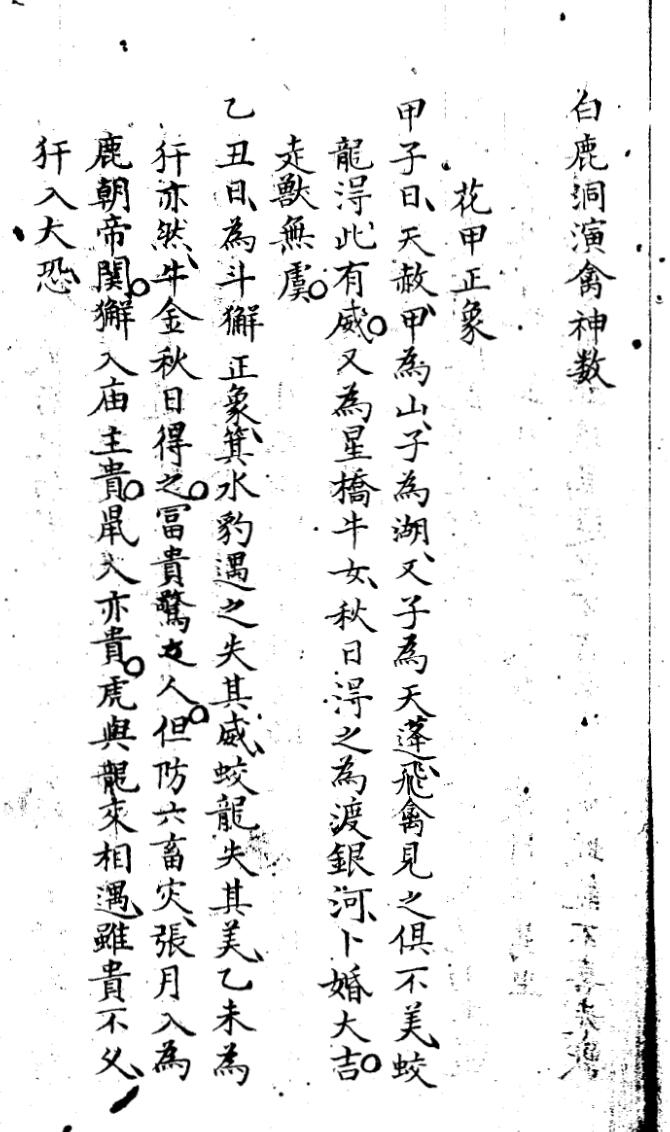 白鹿洞演禽神数
花甲正象
甲子日、天赦、甲為山、子為湖、又子為天蓬、飛禽見之俱不美、蛟
龍淂此、有威。又為星橋牛女、秋日淂之為渡銀河、卜婚大吉。
走獸無虞。
乙丑日、為斗獬正象、箕水豹遇之失其威、蛟龍失其美、乙未為
犴亦然、牛金秋日得之。冨貴驚之人。但防六畜灾、張月入為
鹿朝帝関。獬入庙主貴。鼠入亦貴。虎與龍來相遇、雖貴不久、
犴入大恐、